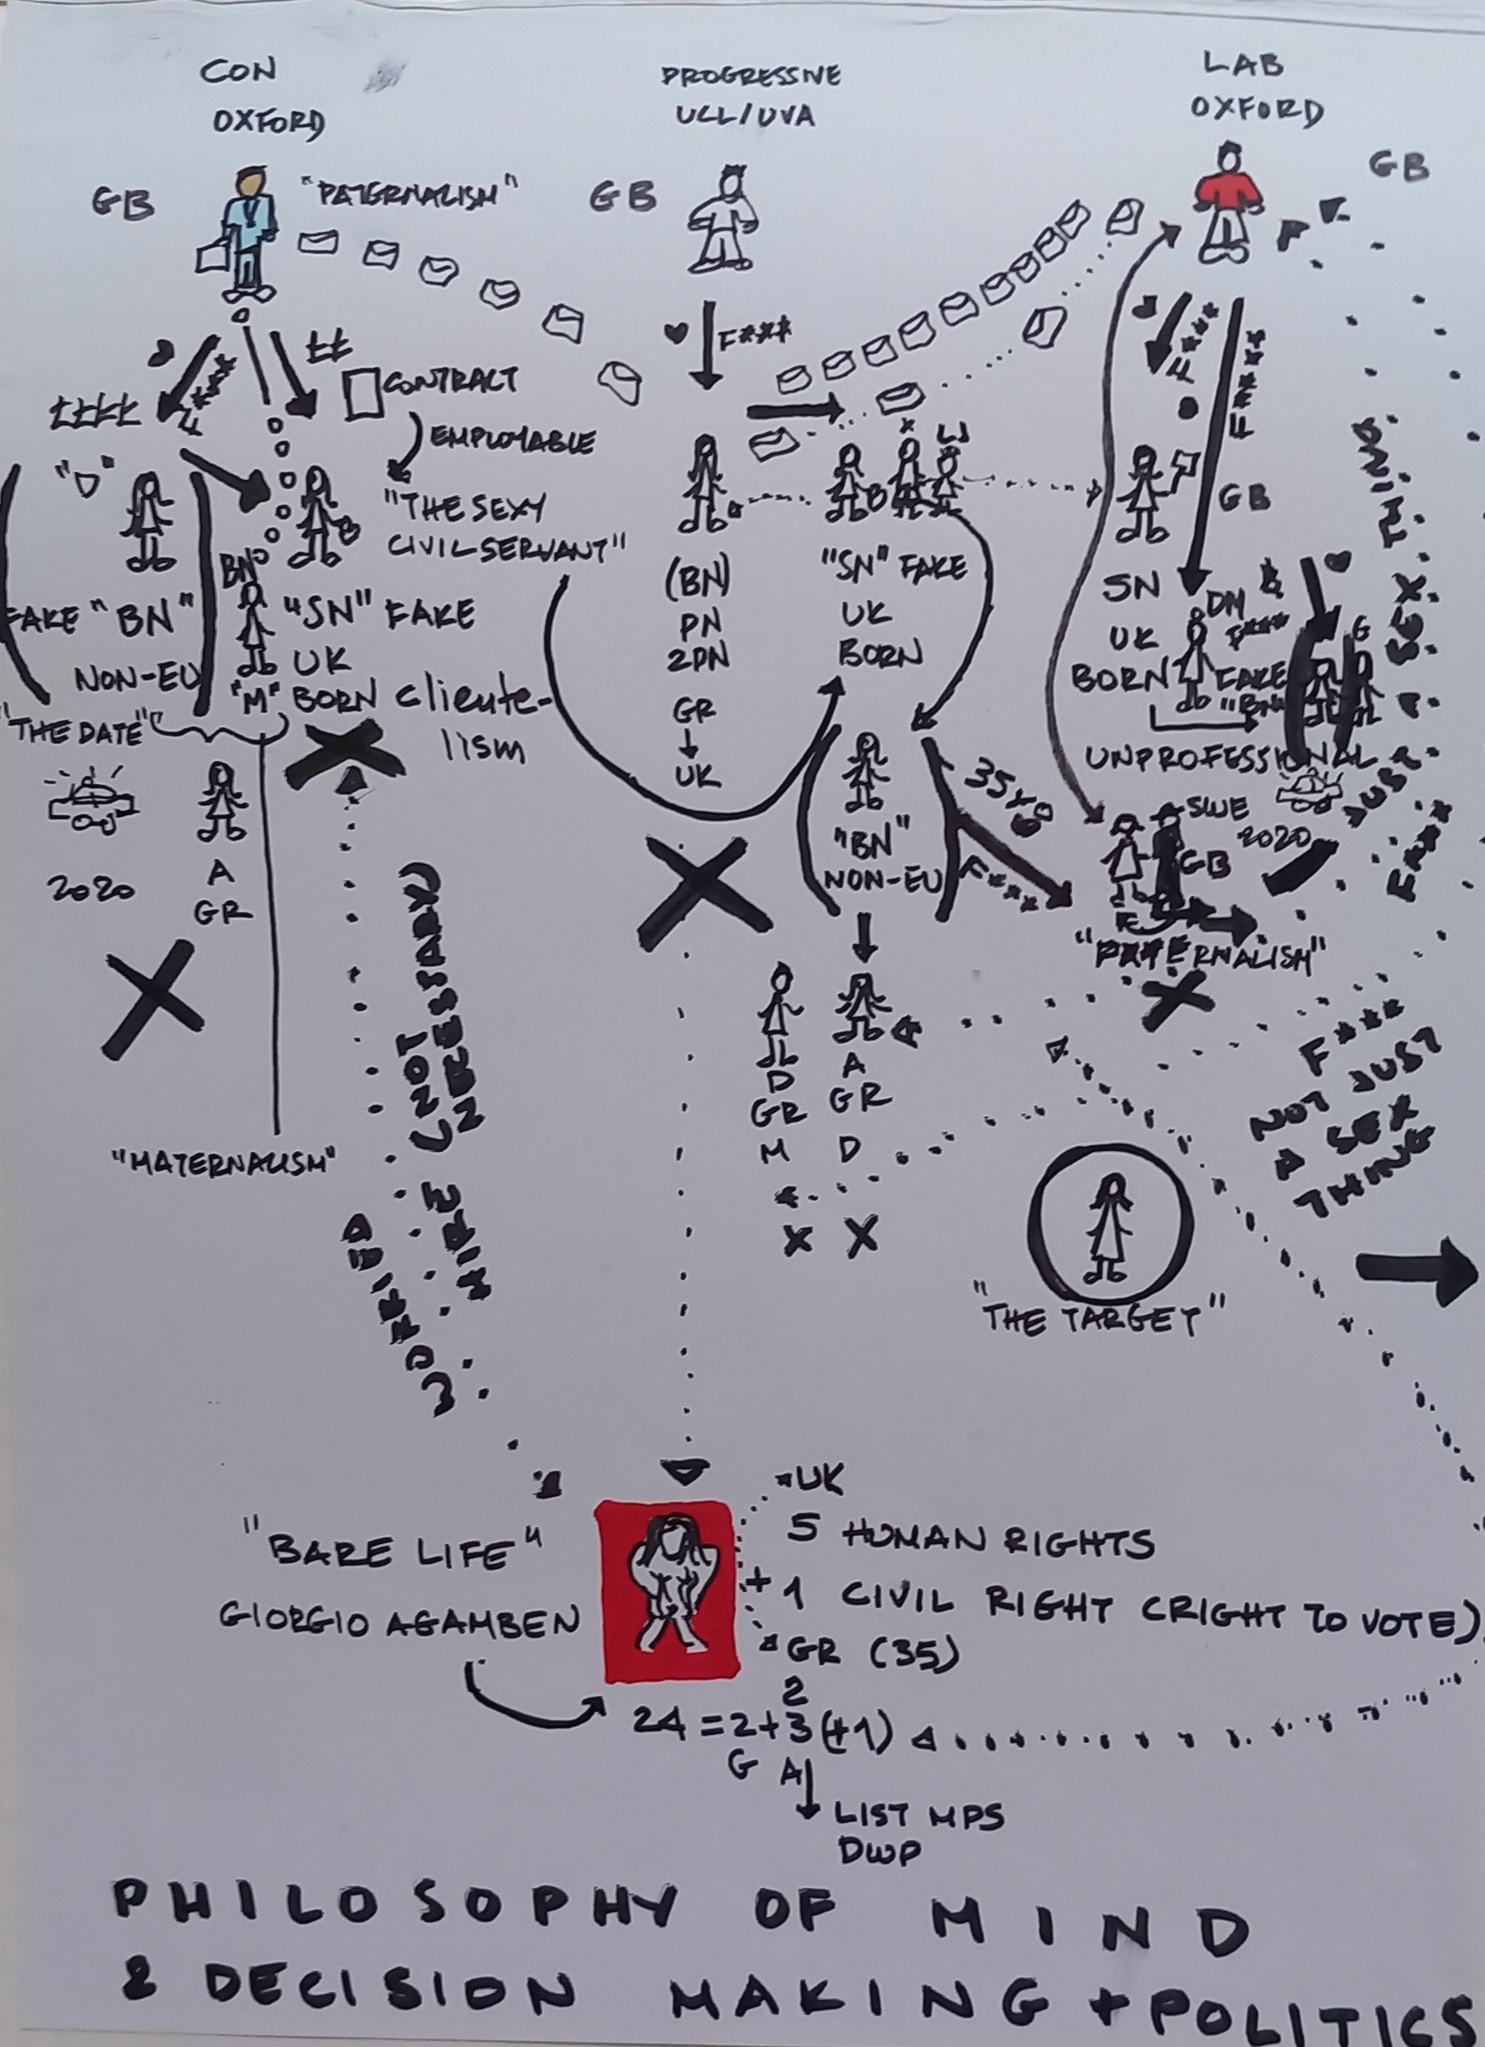 CON
OXFORD
PROGRESSIVE
UCL/UVA
LAB
OXFORD
GB
"PATERNALISM"
GB
GB
F***
££
CONTRACT
EMPLOYABLE
££££
F****
"D"
"THE SEXY
CIVIL SERVANT"
FAKE "BN"
NON-EU
"THE DATE"
BN
"M"
"SN" FAKE
UK
BORN
clientelism
2020
A
GR
"MATERNALISM"
(BN)
PN
2PN
GR
UK
"SN" FAKE
UK
BORN
"BN"
NON-EU
35 YO
F****
D
GR
M
X
A
GR
D
X
F****
F****
GB
SN
UK
BORN
DM
F***
FAKE
"BN"
G
UNPROFESSIONAL
SWE
2020
GB
F
"PATERNALISM"
F***
JUST
A
SEX
F****
NOT JUST
A SEX
THING
"THE TARGET"
(NOT
NECESSARY)
HIRE
"BARE LIFE"
GIORGIO AGAMBEN
UK
5 HUMAN RIGHTS
+ 1 CIVIL RIGHT (RIGHT TO VOTE)
GR (35)
2
24 = 2+3 (+1)
G A
LIST MPS
DWP
PHILOSOPHY OF MIND
& DECISION MAKING + POLITICS